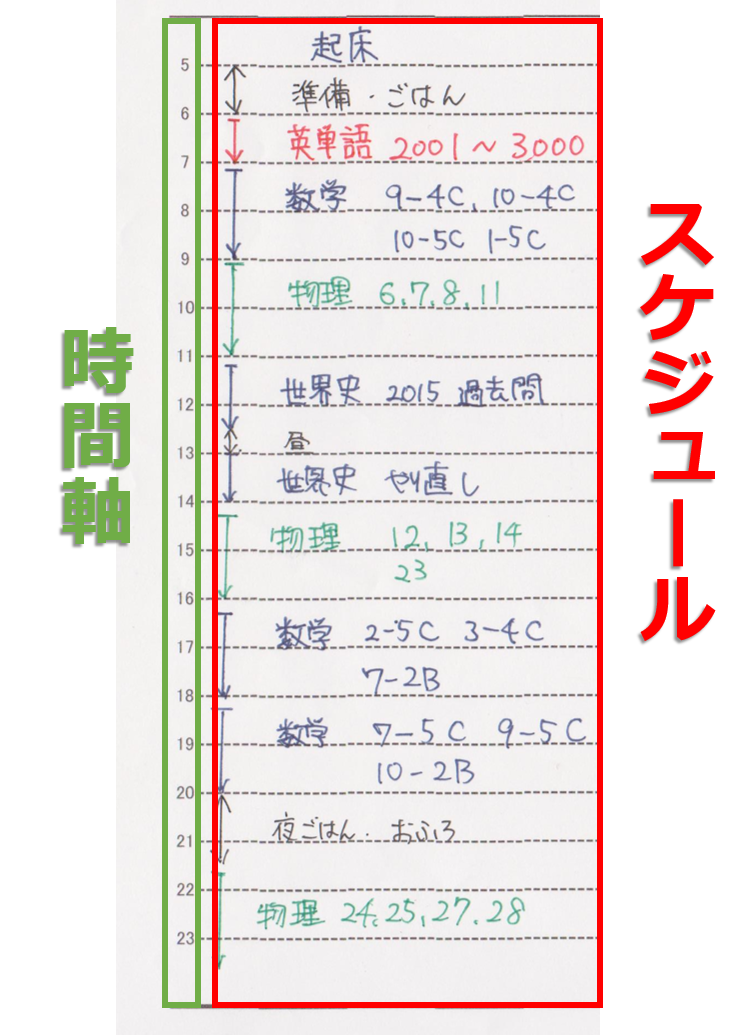 起床
5
準備・ごはん
6
英単語 2001～3000
7
数学 9-4C, 10-4C
8
10-5C 1-5C
9
物理 6,7,8,11
10
11
世界史 2015 過去問
12
昼
13
世界史 やり直し
14
物理 12, 13, 14
15
23
16
数学 2-5C 3-4C
17
7-2B
18
数学 7-5C 9-5C
19
10-2B
20
夜ごはん・おふろ
21
22
物理 24,25,27,28
23
時間軸
スケジュール